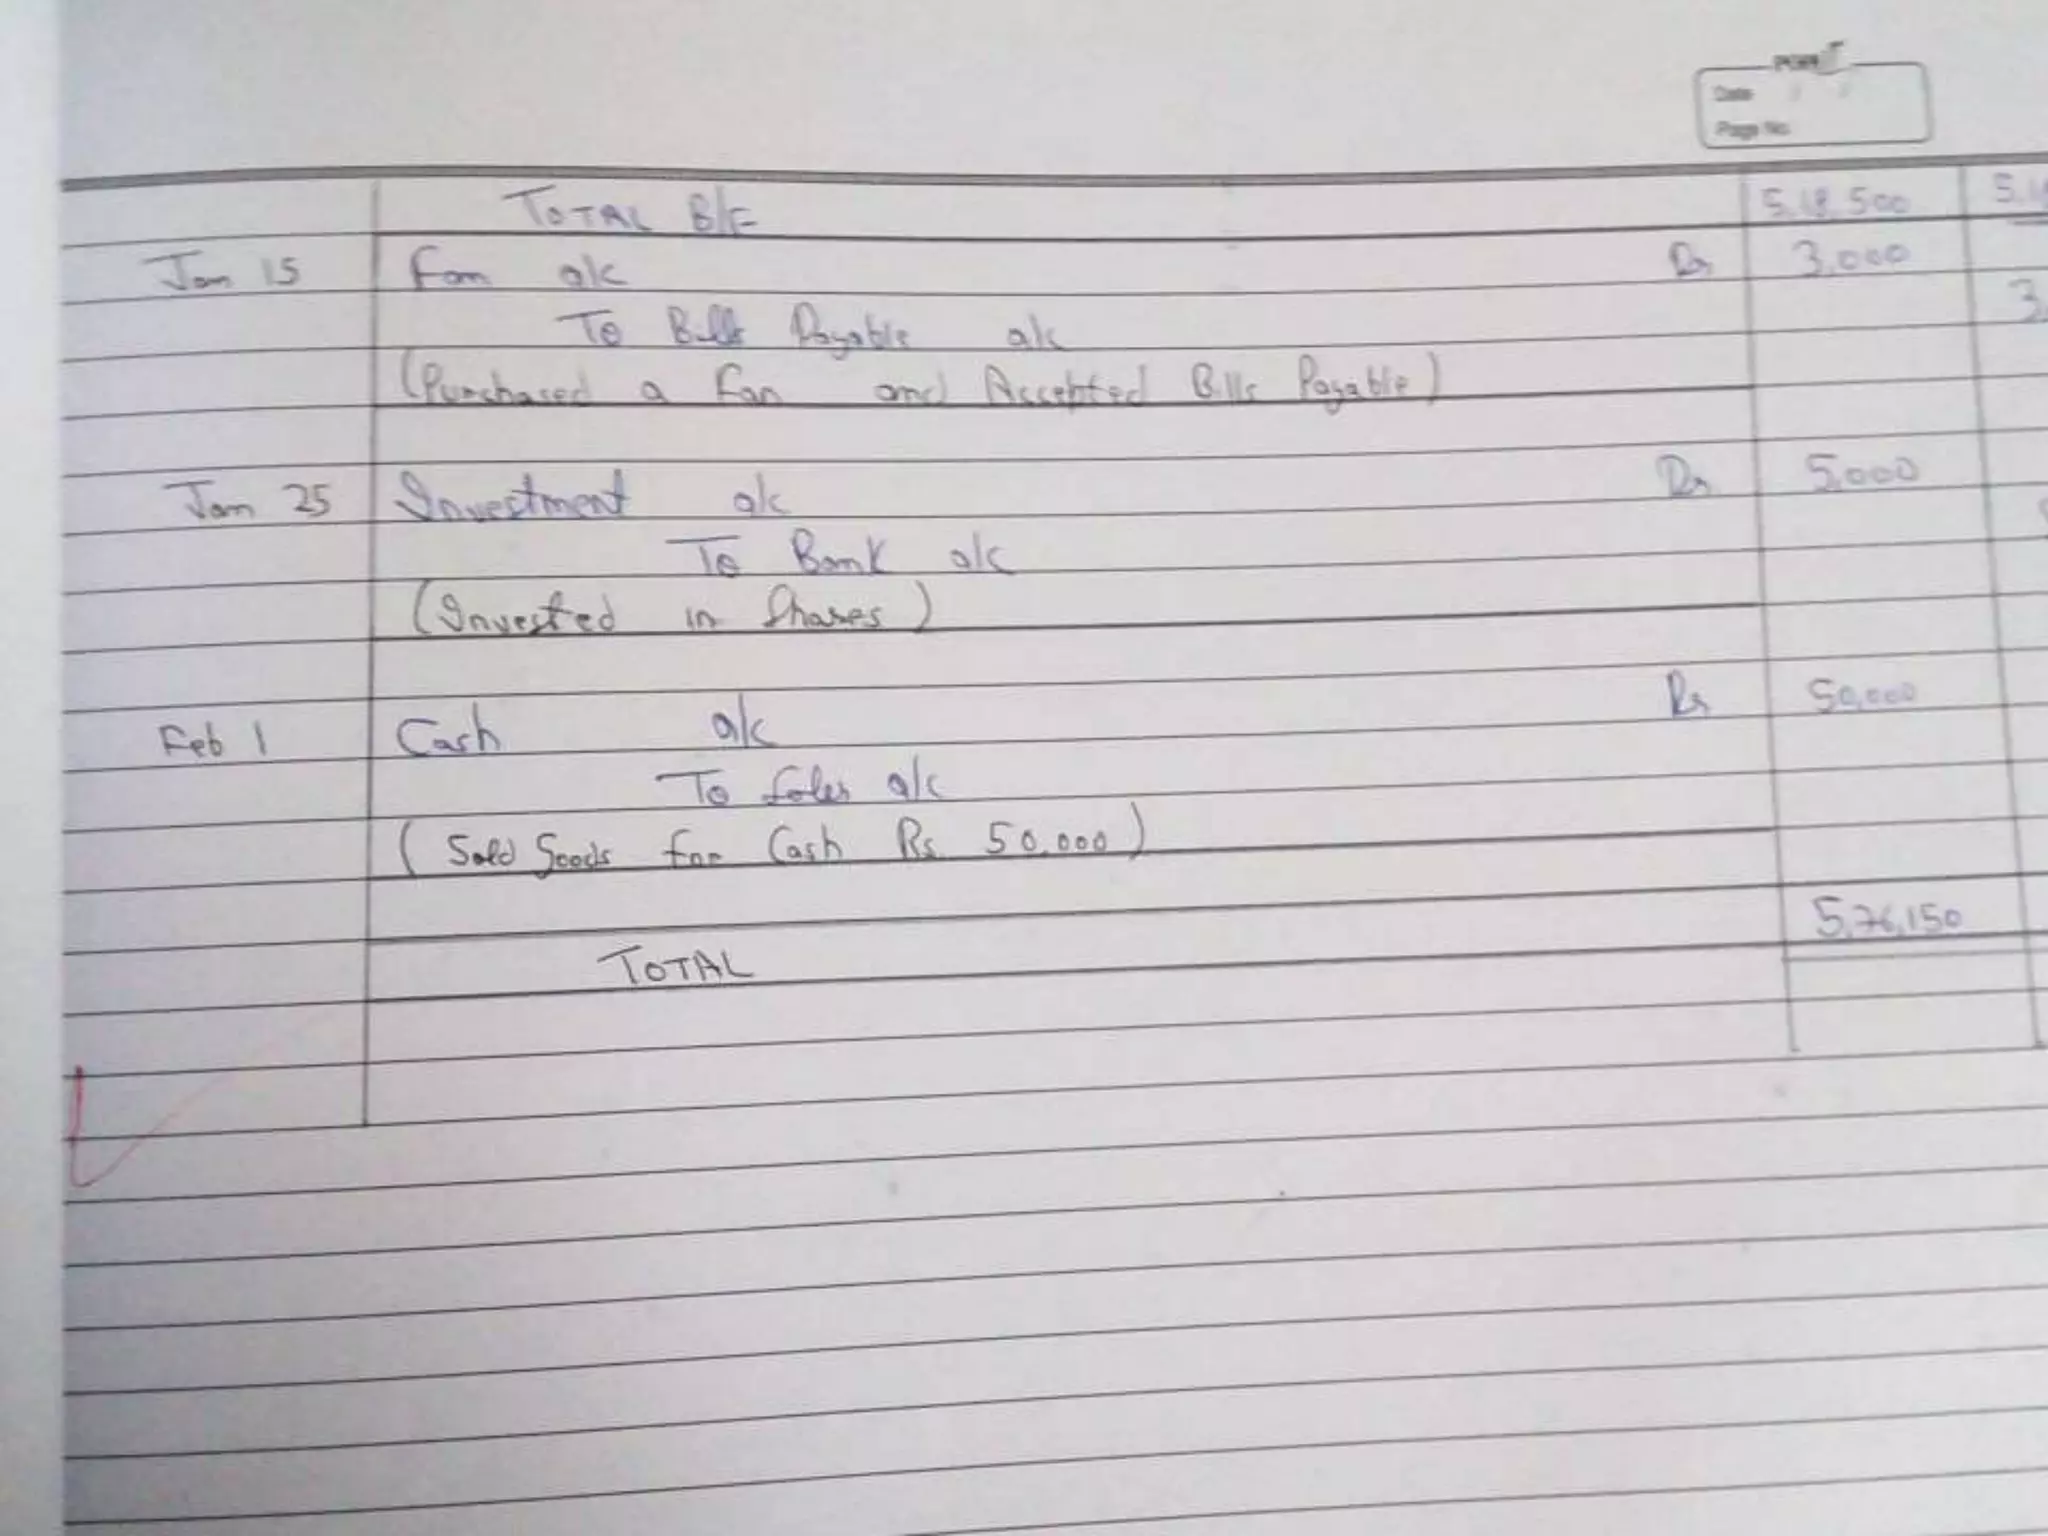 Date
Page No.
TOTAL B/F 5,18,500
Jan 15 Fan a/c Dr 3,000
To Bills Payable a/c 3,
(Purchased a Fan and Accepted Bills Payable)
Jan 25 Investment a/c Dr 5,000
To Bank a/c
(Invested in Shares)
Feb 1 Cash a/c Dr 50,000
To Sales a/c
(Sold Goods for Cash Rs. 50,000)
TOTAL 5,76,150